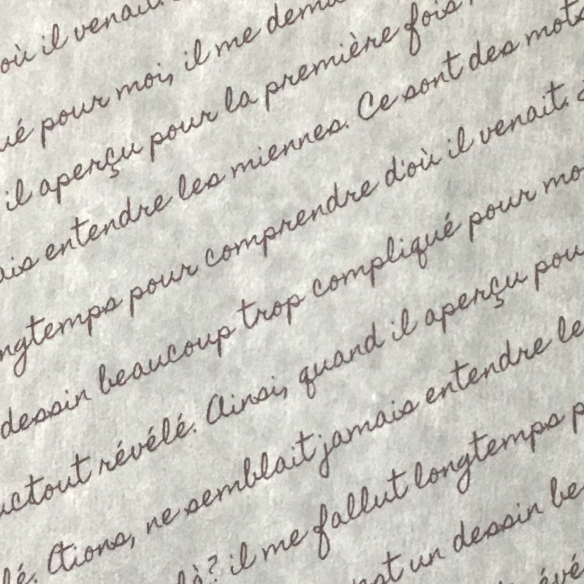 où il venait.
ué pour moi, il me dema
il aperçu pour la première fois
ais entendre les miennes. Ce sont des mots
ngtemps pour comprendre d'où il venait.
dessin beaucoup trop compliqué pour mo
uctout révélé. Ainsi, quand il aperçu pou
lé. Ctions, ne semblait jamais entendre le
là? il me fallut longtemps p
st un dessin be
évé